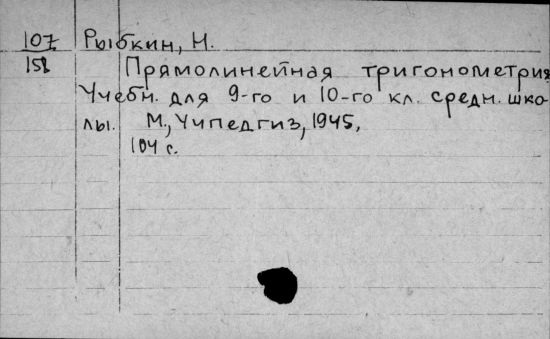 107 Рыбкин, Н.
158 Прямолинейная тригонометрия
Учебн. для 9-го и 10-го кл. средн. шко-
лы. М., Учпедгиз, 1945,
104 с.